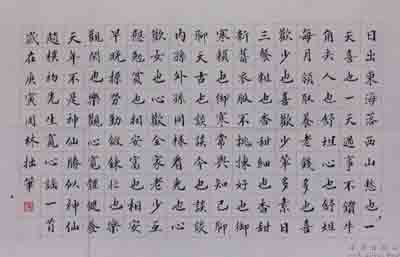 日出東海落西山愁也一
天喜也一天遇事不鑽牛
角尖人也舒坦心也舒坦
每月領取養老錢多也喜
歡少也喜歡少葷多素日
三餐粗也香甜細也香甜
新舊衣服不挑揀好也御
寒賴也御寒常與知己聊
聊天古也談談今也談談
內孫外孫同樣看兒也心
歡女也心歡全家老少互
慰勉貧也相安富也相安
早晚操勞勤鍛鍊忙也樂
觀閑也樂觀心寬體健養
天年不是神仙勝似神仙
趙樸初先生寬心謠一首
歲在庚寅周林拙筆